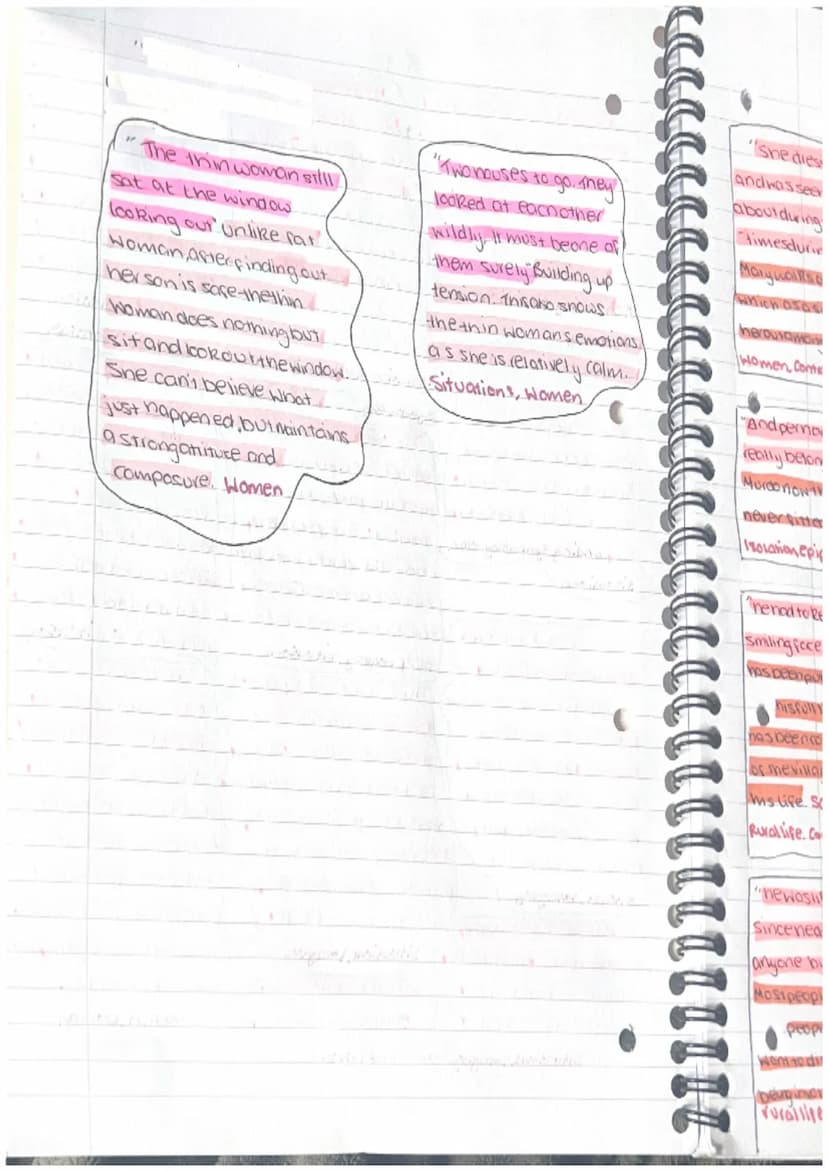 "The thin woman still
sat at the window
looking out" Unlike fat
woman, after finding out
her son is safe the thin
woman does nothing but
sit and look out the window.
She can't believe what
just happened, but maintains
a strong attitude and
composure. Women
"Two houses to go. They
looked at each other
wildly. It must be one of
them surely" Building up
tension. This also shows
the thin womans emotions
as she is relatively calm.
Situations, Women
"She dies
and was see
about during
"times durin
Many
which as a s
her
Women, Com
"And
really belon
Murdo now
never fitted
Isolation, epi
"he had to
smiling face
has been pu
his full
has been
of the villa
his life. S
Rural life. Co
"he was
Since
anyone b
Most peop
people
want to di
being
rural life